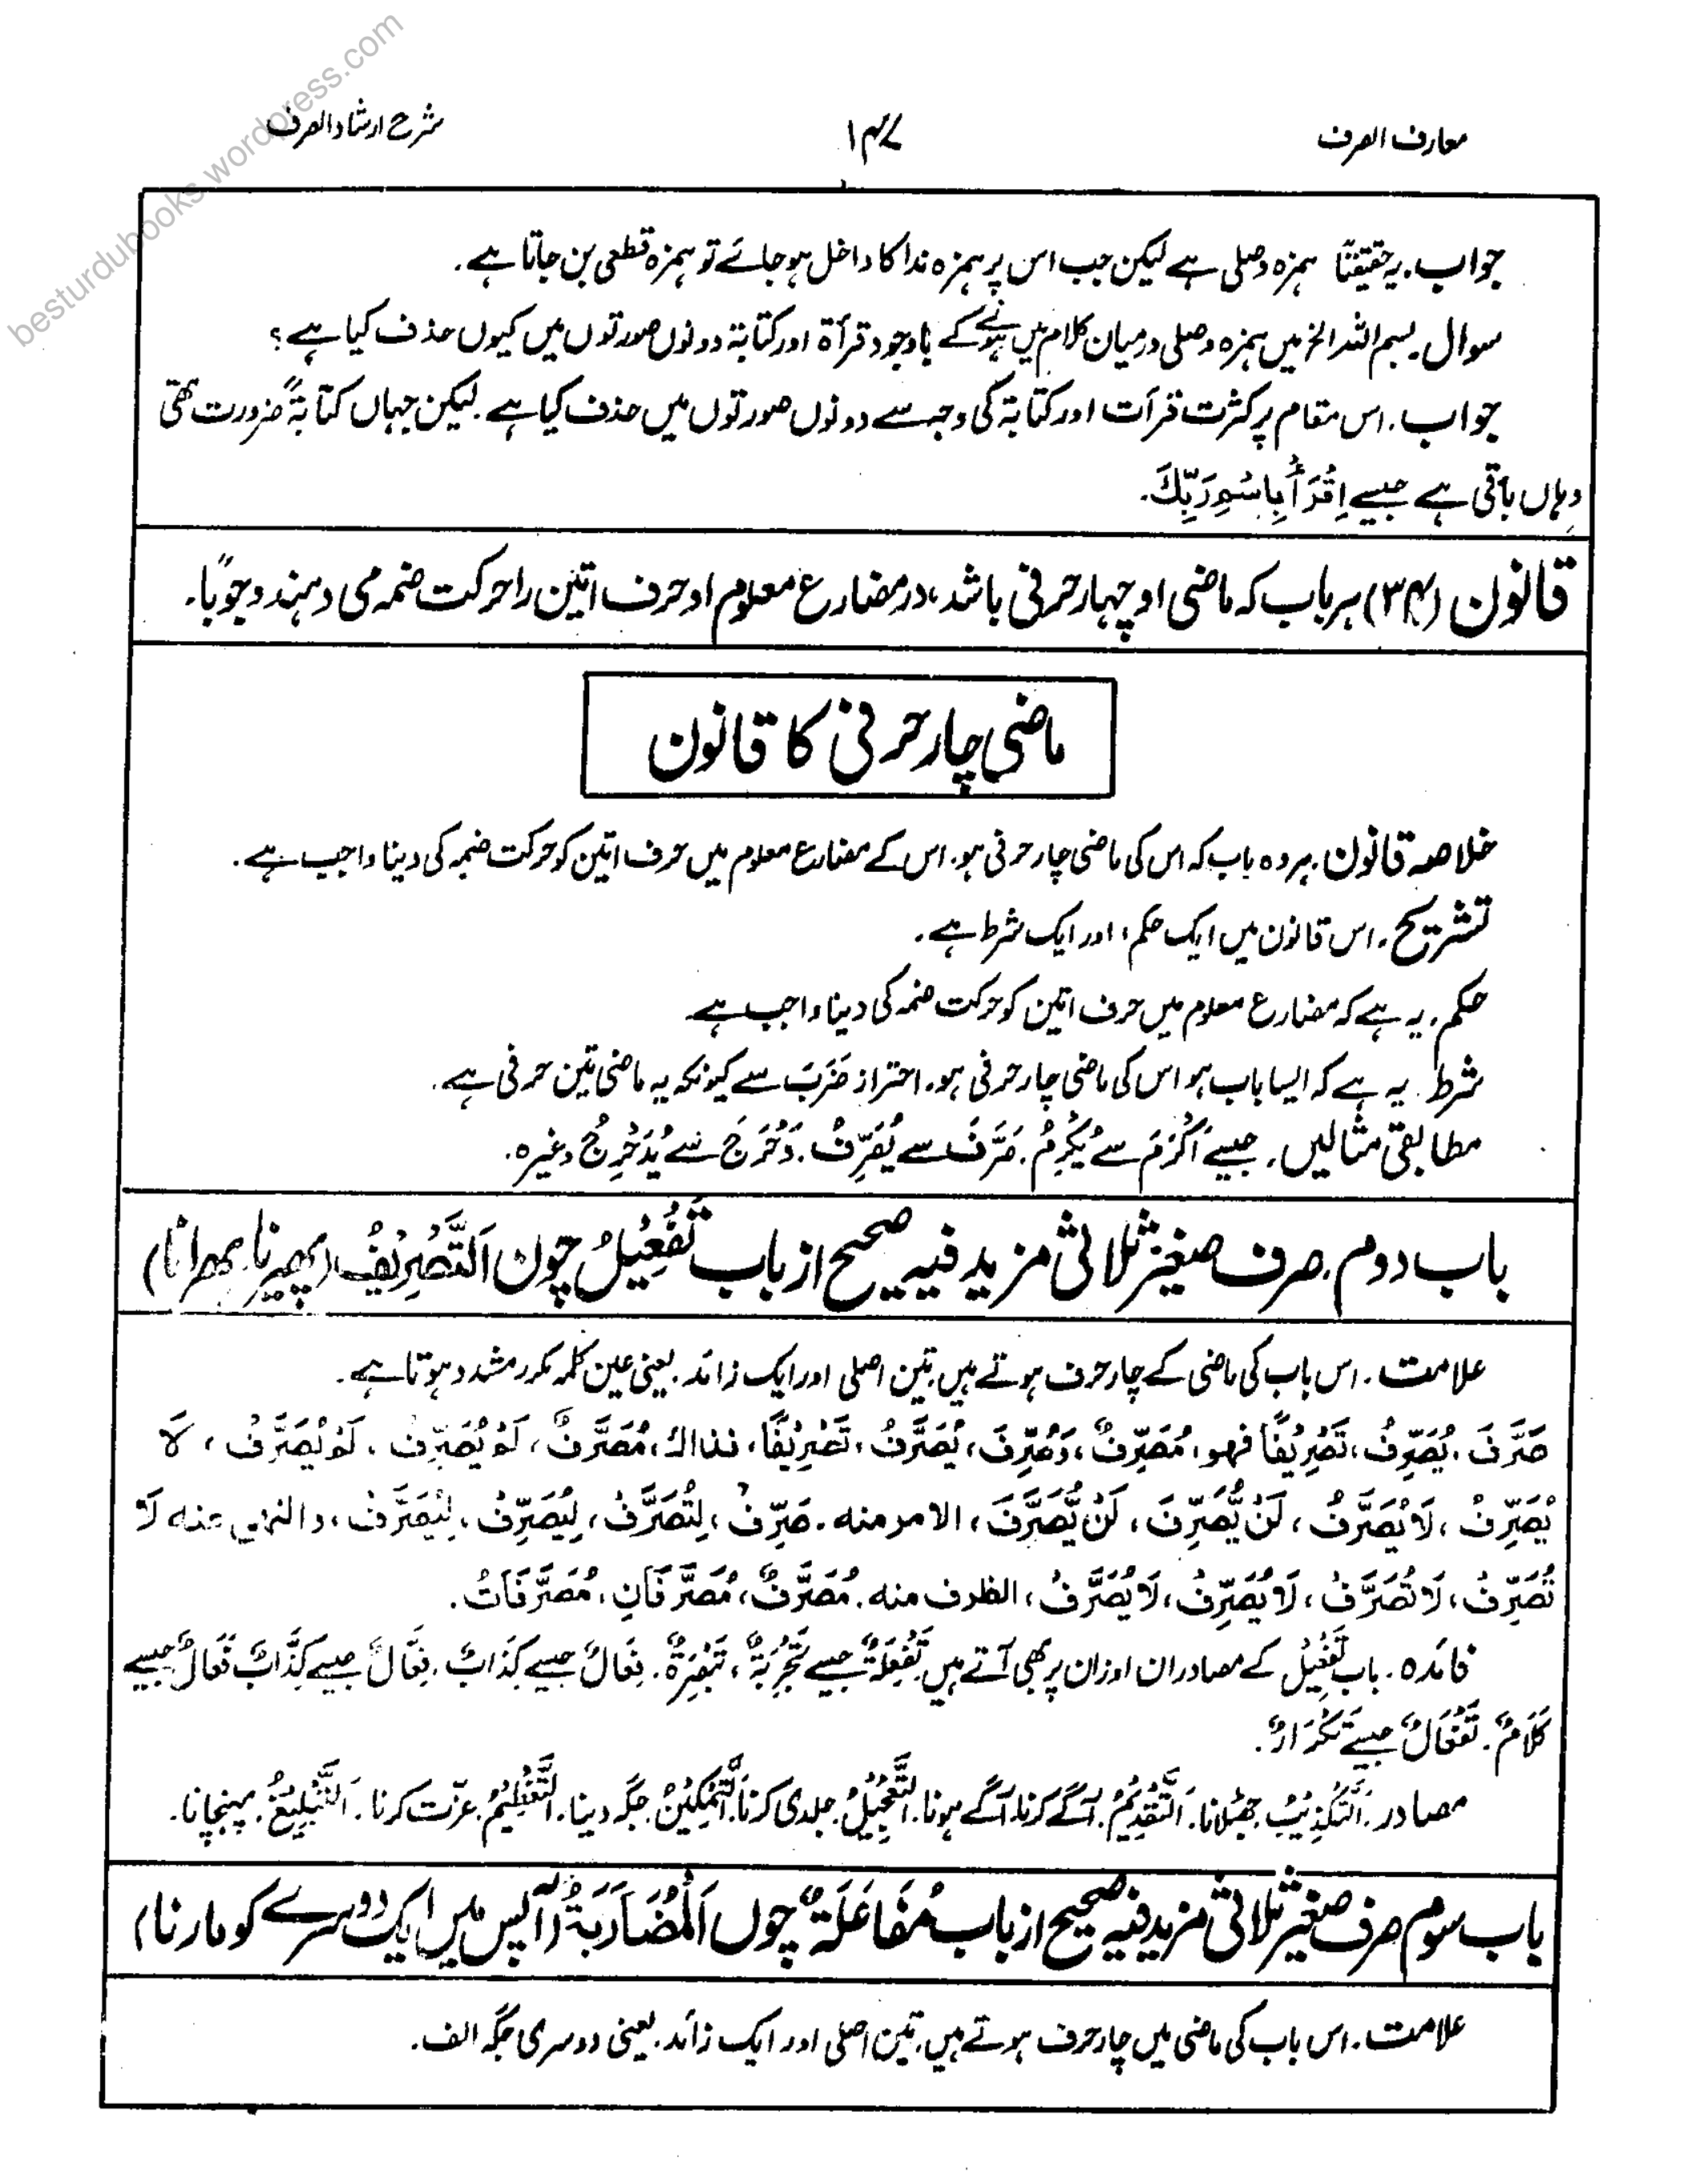 besturdubooks.wordpress.com
معارف الصرف ۱۴۷ شرح ارشاد الصرف
جواب۔ یہ حقیقتاً ہمزہ وصلی ہے لیکن جب اس پر ہمزہ ندا کا داخل ہو جائے تو ہمزہ قطعی بن جاتا ہے۔
سوال۔ بسم اللہ الخ میں ہمزہ وصلی درمیان کلام میں ہونے کے باوجود قرأۃ اور کتابۃ دونوں صورتوں میں کیوں حذف کیا ہے؟
جواب۔ اس مقام پر کثرت قرأت اور کتابۃ کی وجہ سے دونوں صورتوں میں حذف کیا ہے۔ لیکن جہاں کتابۃً ضرورت تھی
وہاں باقی ہے جیسے اِقْرَأْ بِاسْمِ رَبِّكَ۔
قانون (۳۴) ہر باب کہ ماضی او چہار حرفی باشد، در مضارع معلوم او حرف اتین را حرکت ضمہ می دہند وجوبًا۔
ماضی چار حرفی کا قانون
خلاصہ قانون۔ ہر وہ باب کہ اس کی ماضی چار حرفی ہو۔ اس کے مضارع معلوم میں حرف اتین کو حرکت ضمہ کی دینا واجب ہے۔
تشریح۔ اس قانون میں ایک حکم، اور ایک شرط ہے۔
حکم۔ یہ ہے کہ مضارع معلوم میں حرف اتین کو حرکت ضمہ کی دینا واجب ہے۔
شرط۔ یہ ہے کہ ایسا باب ہو اس کی ماضی چار حرفی ہو۔ احتراز ضَرَبَ سے کیونکہ یہ ماضی تین حرفی ہے۔
مطابقی مثالیں۔ جیسے اَكْرَمَ سے يُكْرِمُ۔ صَرَّفَ سے يُصَرِّفُ۔ دَحْرَجَ سے يُدَحْرِجُ وغیرہ۔
باب دوم۔ صرف صغیر ثلاثی مزید فیہ صحیح از باب تَفْعِيْلُ چون اَلتَّصْرِيْفُ (پھیرنا پھرانا)
علامت۔ اس باب کی ماضی کے چار حرف ہوتے ہیں۔ تین اصلی اور ایک زائد۔ یعنی عین کلمہ مکرر مشدد ہوتا ہے۔
صَرَّفَ، يُصَرِّفُ، تَصْرِيْفًا فهو، مُصَرِّفٌ، وَصُرِّفَ، يُصَرَّفُ، تَصْرِيْفًا، فذاك، مُصَرَّفٌ، لَمْ يُصَرِّفْ، لَمْ يُصَرَّفْ، لَا
يُصَرِّفُ، لَا يُصَرَّفُ، لَنْ يُّصَرِّفَ، لَنْ يُّصَرَّفَ، الامر منه۔ صَرِّفْ، لِتُصَرَّفْ، لِيُصَرِّفْ، لِيُصَرَّفْ، والنهى عنه لَا
تُصَرِّفْ، لَا تُصَرَّفْ، لَا يُصَرِّفْ، لَا يُصَرَّفْ، الظرف منه۔ مُصَرَّفٌ، مُصَرَّفَانِ، مُصَرَّفَاتٌ۔
فائدہ۔ باب تَفْعِيْل کے مصادر ان اوزان پر بھی آتے ہیں تَفْعِلَةٌ جیسے تَجْرِبَةٌ، تَبْصِرَةٌ۔ فِعَالٌ جیسے كِذَابٌ۔ فِعَّالٌ جیسے كِذَّابٌ فَعَالٌ جیسے
كَلَامٌ۔ تَفْعَالٌ جیسے تَكْرَارٌ۔
مصادر۔ اَلتَّكْذِيْبُ۔ جھٹلانا۔ اَلتَّقْدِيْمُ۔ آگے کرنا۔ آگے ہونا۔ اَلتَّعْجِيْلُ۔ جلدی کرنا۔ اَلتَّمْكِيْنُ۔ جگہ دینا۔ اَلتَّعْظِيْمُ۔ عزّت کرنا۔ اَلتَّبْلِيْغُ۔ پہنچانا۔
باب سوم صرف صغیر ثلاثی مزید فیہ صحیح از باب مُفَاعَلَةٌ چوں اَلْمُضَارَبَةُ (آپس میں ایک دوسرے کو مارنا)
علامت۔ اس باب کی ماضی میں چار حرف ہوتے ہیں۔ تین اصلی اور ایک زائد۔ یعنی دوسری جگہ الف۔